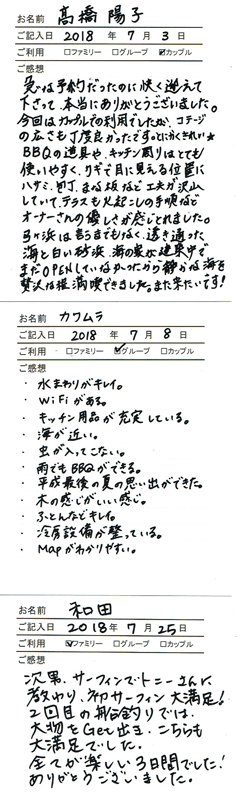 お名前 髙橋 陽子
ご記入日 2018 年 7 月 3 日
ご利用 □ファミリー □グループ ☑カップル
ご感想
急な予約だったのに快く迎えて
下さって、本当にありがとうございました。
今回はカップルでの利用でしたが、コテージ
の広さも丁度良かったです。とにかくきれい★
BBQの道具や、キッチン周りはとても
使いやすく、すぐ目に見える位置に
ハサミ、包丁、まな板など工夫が沢山
していて、テラスも火起こしの手順など
オーナーさんの優しさが感じとれました。
弓ヶ浜は言うまでもなく、透き通った
海と白い砂浜、海の家が建築中で
まだOPENしていなかったから静かな海を
贅沢な程満喫できました。また来たいです!
お名前 カワムラ
ご記入日 2018 年 7 月 8 日
ご利用 □ファミリー ☑グループ □カップル
ご感想
・ 水まわりがキレイ。
・ WiFiがある。
・ キッチン用品が充実している。
・ 海が近い。
・ 虫が入ってこない。
・ 雨でもBBQができる。
・ 平成最後の夏の思い出ができた。
・ 木の感じがいい感じ。
・ ふとんなどキレイ。
・ 冷房設備が整っている。
・ Mapがわかりやすい。
お名前 和田
ご記入日 2018 年 7 月 25 日
ご利用 ☑ファミリー □グループ □カップル
ご感想
次男、サーフィンでトニーさんに
教わり、初サーフィン大満足!
2回目の船釣りでは、
大物をGet出来、こちらも
大満足でした。
全てが楽しい3日間でした!
ありがとうございました。